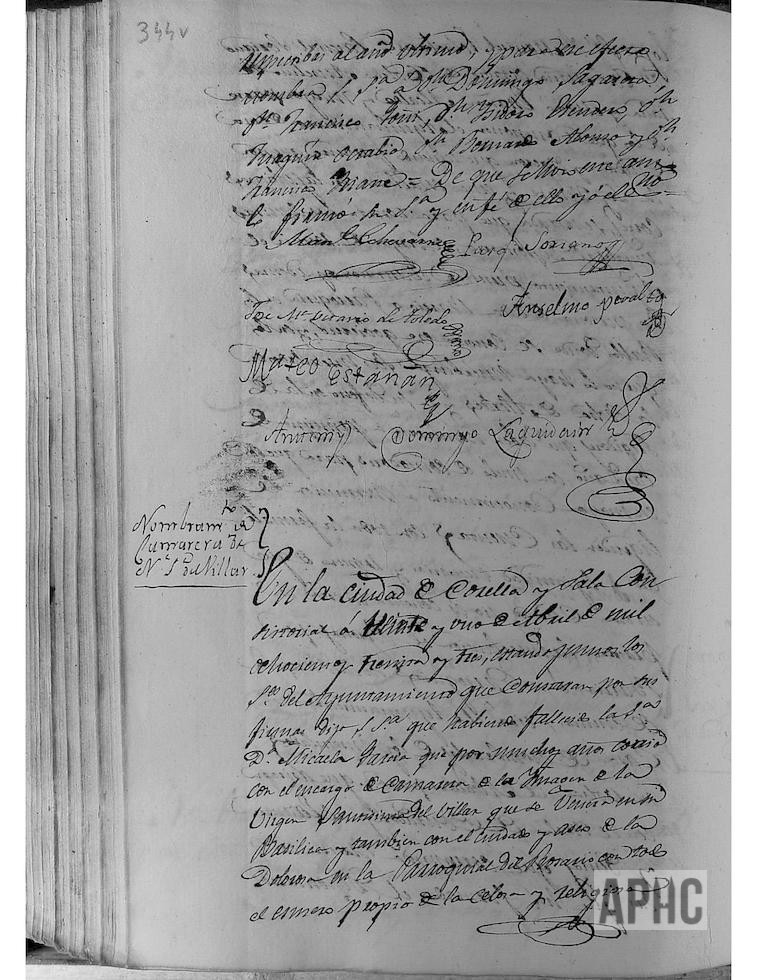 344v
nombra S. Sª a Dn Domingo Sagasea,
Dn Francisco Dn Isidoro Dn
Joaquin Octabio, Dn Bernardo Alonso y Dn
= De que se hizo este auto
lo firmó su Sª y en fé de ello yo el Essno
Manl Echavarria Jorge Soriano
Anselmo peralta
Joé Mª Vicario de Toledo
Mateo Estañan
Antemy Domingo Laquidain
Nombramto de
Camarera de
Nª Sª del Villar
En la ciudad de Corella y Sala Con
sistorial á veinte y uno de Abril de mil
ochocientos treinta y tres, estando juntos los
Sres del Ayuntamiento que constaran por sus
firmas dijo S. Sª que habiendo fallecido la Sª
Dª Micaela Garcia que por muchos años corrió
con el encargo de Camarera de la Imagen de la
Virgen Santisima del Villar que se Venera en su
Basilica y tambien con el cuidado y aseo de la
Dolorosa en la Parroquial del Rosario con todo
el esmero propio de la celosa y religiosa
APHC